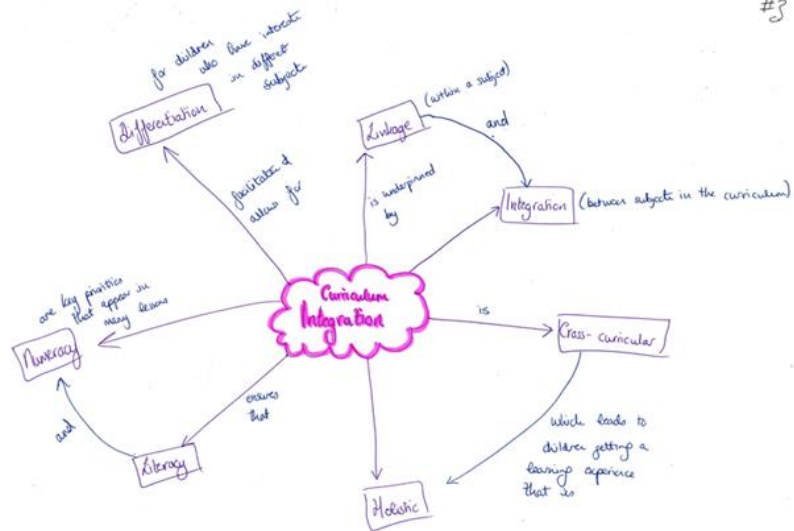 #3
for children
who have interests
in different
subjects
Differentiation
facilitates &
allows for
Linkage
(within a subject)
and
is underpinned
by
Integration
(between subjects in the curriculum)
Curriculum
Integration
is
Cross-curricular
which leads to
children getting a
learning experience
that is
Holistic
ensures
that
Literacy
and
Numeracy
are key priorities
that appear in
many lessons